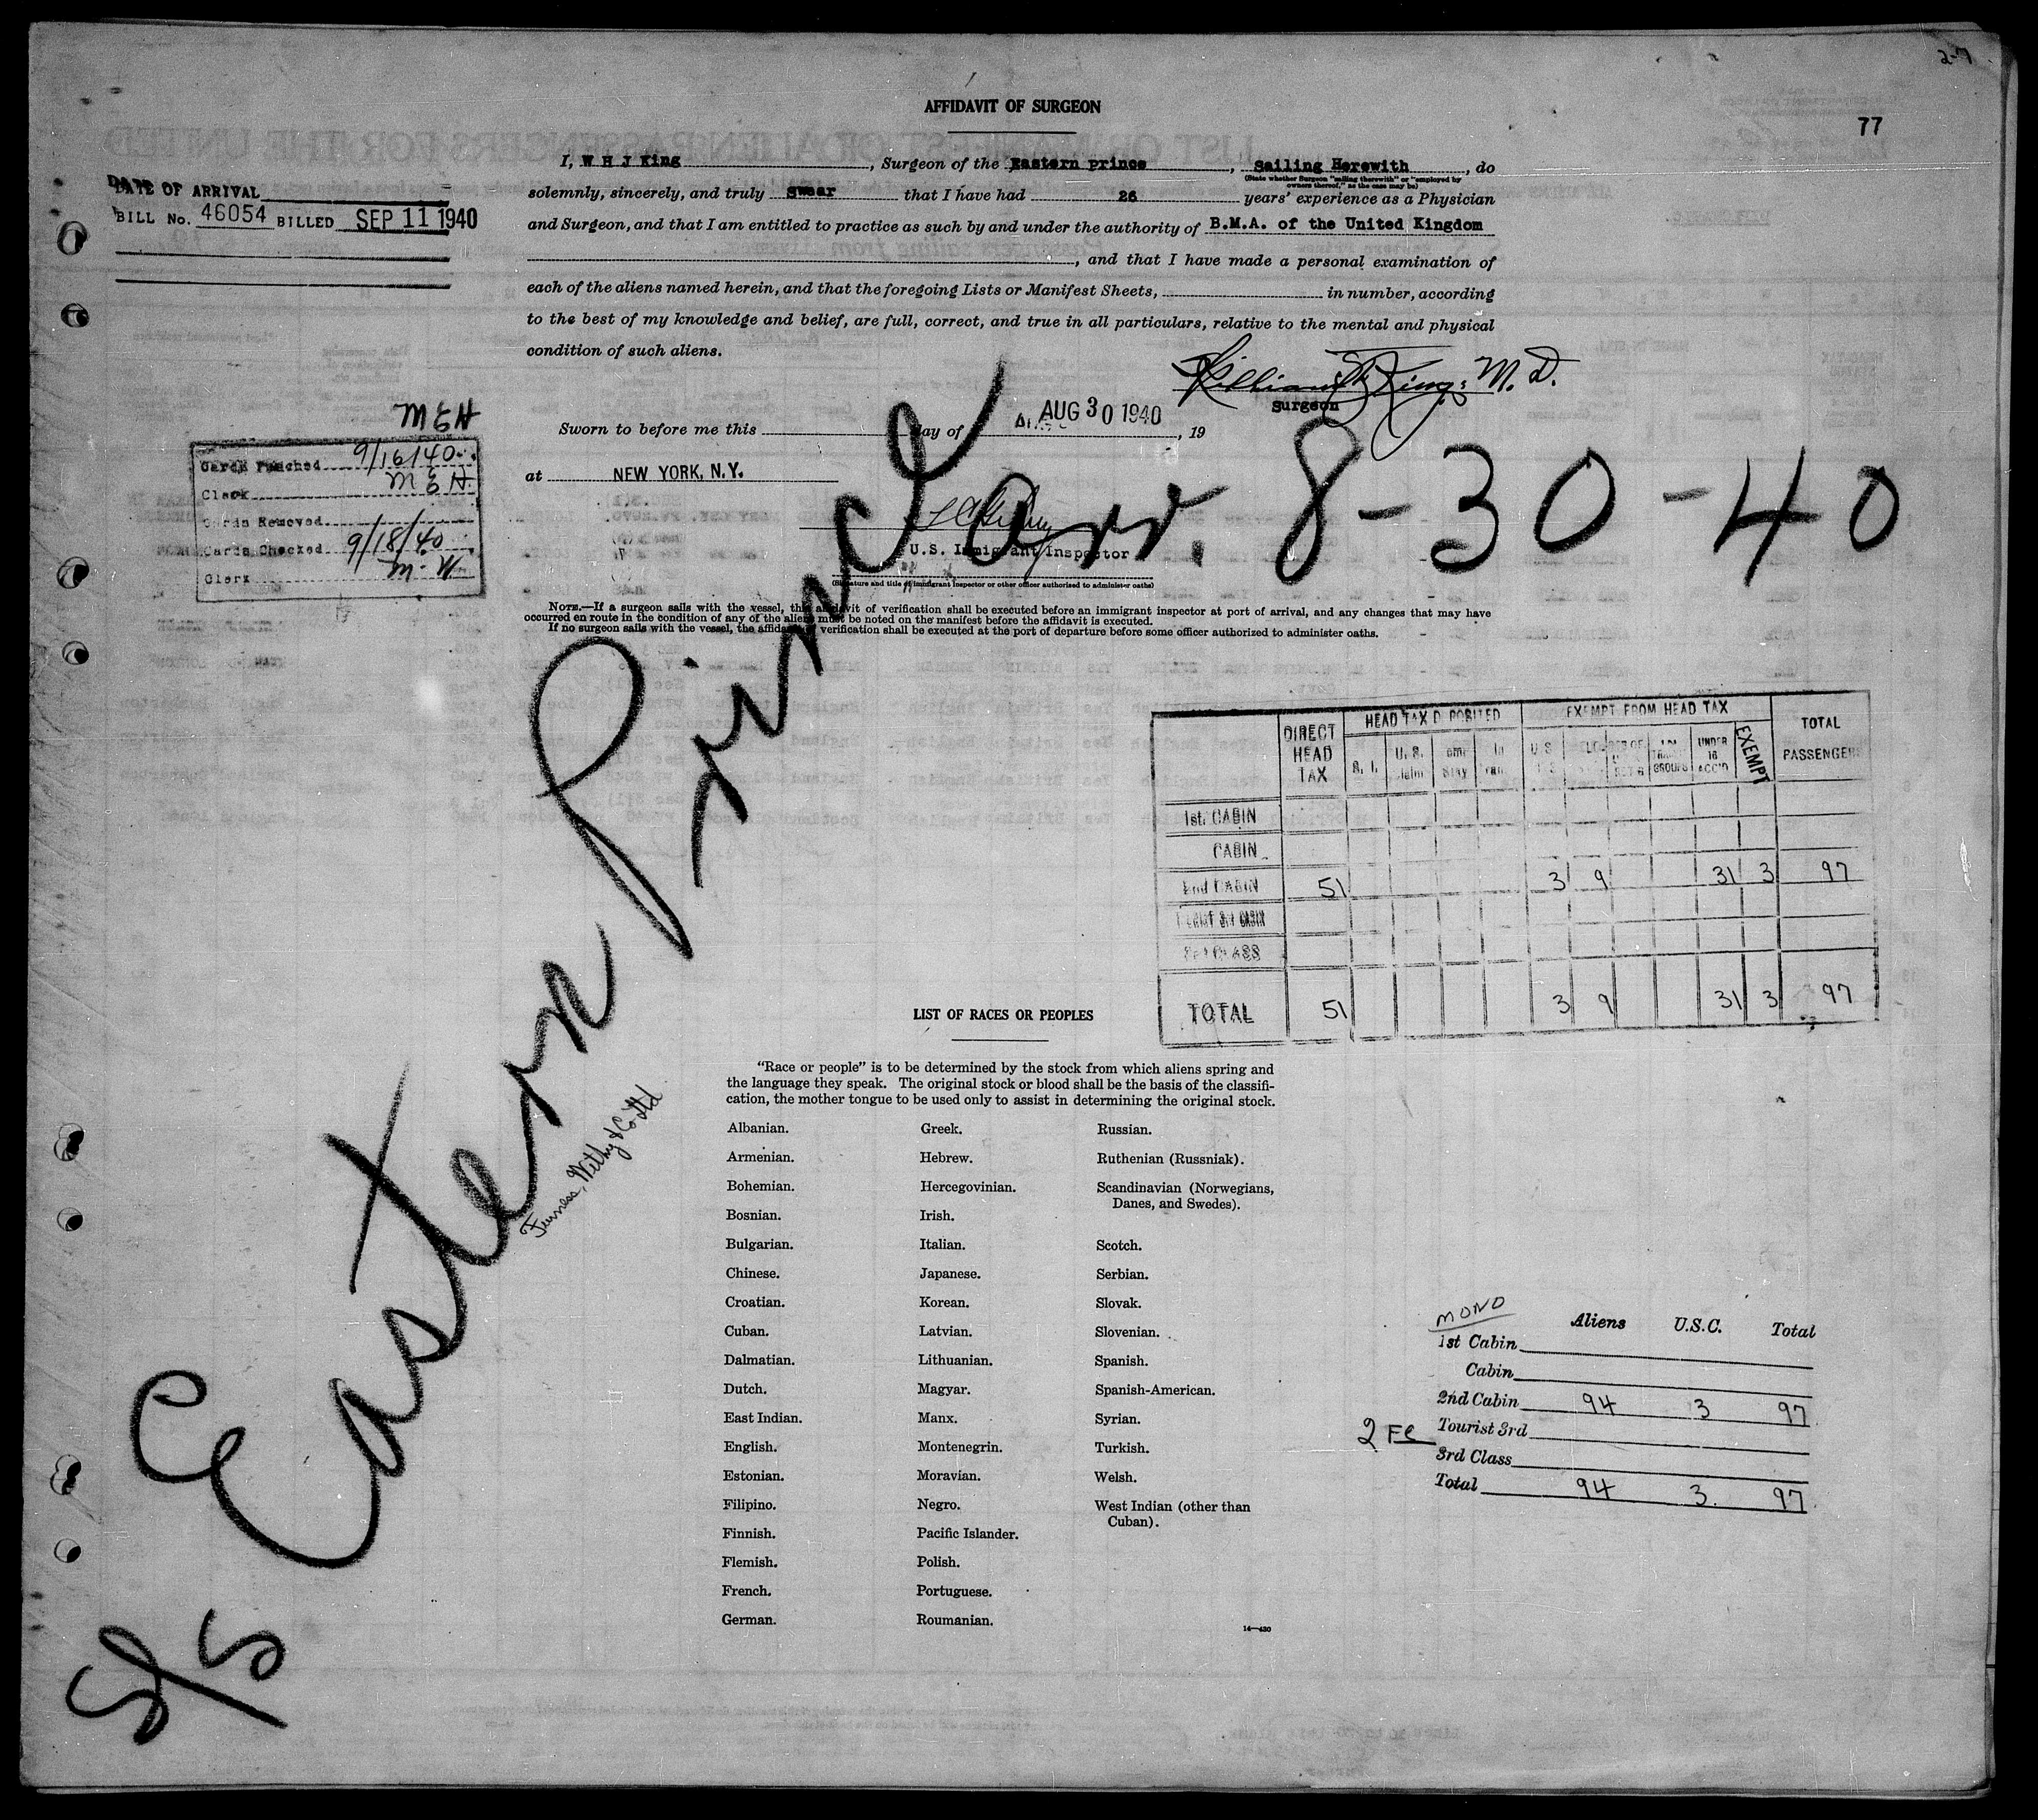 2-7
77
AFFIDAVIT OF SURGEON
I, W H J King, Surgeon of the Eastern prince, Sailing Herewith, do
(State whether Surgeon "sailing therewith" or "employed by
owners thereof," as the case may be)
solemnly, sincerely, and truly swear that I have had 26 years' experience as a Physician
and Surgeon, and that I am entitled to practice as such by and under the authority of B.M.A. of the United Kingdom
, and that I have made a personal examination of
each of the aliens named herein, and that the foregoing Lists or Manifest Sheets, in number, according
to the best of my knowledge and belief, are full, correct, and true in all particulars, relative to the mental and physical
condition of such aliens.
DATE OF ARRIVAL
BILL No. 46054 BILLED SEP 11 1940
William King, M.D.
Surgeon
Sworn to before me this day of AUG 30 1940, 19
at NEW YORK, N.Y.
U.S. Immigrant Inspector
(Signature and title of immigrant inspector or other officer authorized to administer oaths)
MEH
Cards Punched 9/16/40
Clerk MEH
Cards Removed
Cards Checked 9/18/40
Clerk M.W.
NOTE.—If a surgeon sails with the vessel, this affidavit of verification shall be executed before an immigrant inspector at port of arrival, and any changes that may have
occurred en route in the condition of any of the aliens must be noted on the manifest before the affidavit is executed.
If no surgeon sails with the vessel, the affidavit of verification shall be executed at the port of departure before some officer authorized to administer oaths.
S/S Eastern Prince arr. 8-30-40
Furness, Withy & Co Ltd
DIRECT HEAD TAX HEAD TAX DEPOSITED EXEMPT FROM HEAD TAX TOTAL PASSENGERS
S. I. U. S. UNDER 16 ACC'D EXEMPT
1st. CABIN
CABIN
2nd CABIN 51 3 9 31 3 97
TOTAL 51 3 9 31 3 97
LIST OF RACES OR PEOPLES
"Race or people" is to be determined by the stock from which aliens spring and
the language they speak. The original stock or blood shall be the basis of the classifi-
cation, the mother tongue to be used only to assist in determining the original stock.
Albanian.
Armenian.
Bohemian.
Bosnian.
Bulgarian.
Chinese.
Croatian.
Cuban.
Dalmatian.
Dutch.
East Indian.
English.
Estonian.
Filipino.
Finnish.
Flemish.
French.
German.
Greek.
Hebrew.
Hercegovinian.
Irish.
Italian.
Japanese.
Korean.
Latvian.
Lithuanian.
Magyar.
Manx.
Montenegrin.
Moravian.
Negro.
Pacific Islander.
Polish.
Portuguese.
Roumanian.
Russian.
Ruthenian (Russniak).
Scandinavian (Norwegians,
Danes, and Swedes).
Scotch.
Serbian.
Slovak.
Slovenian.
Spanish.
Spanish-American.
Syrian.
Turkish.
Welsh.
West Indian (other than
Cuban).
14—430
MOND
Aliens U.S.C. Total
1st Cabin
Cabin
2nd Cabin 94 3 97
2 FC Tourist 3rd
3rd Class
Total 94 3 97